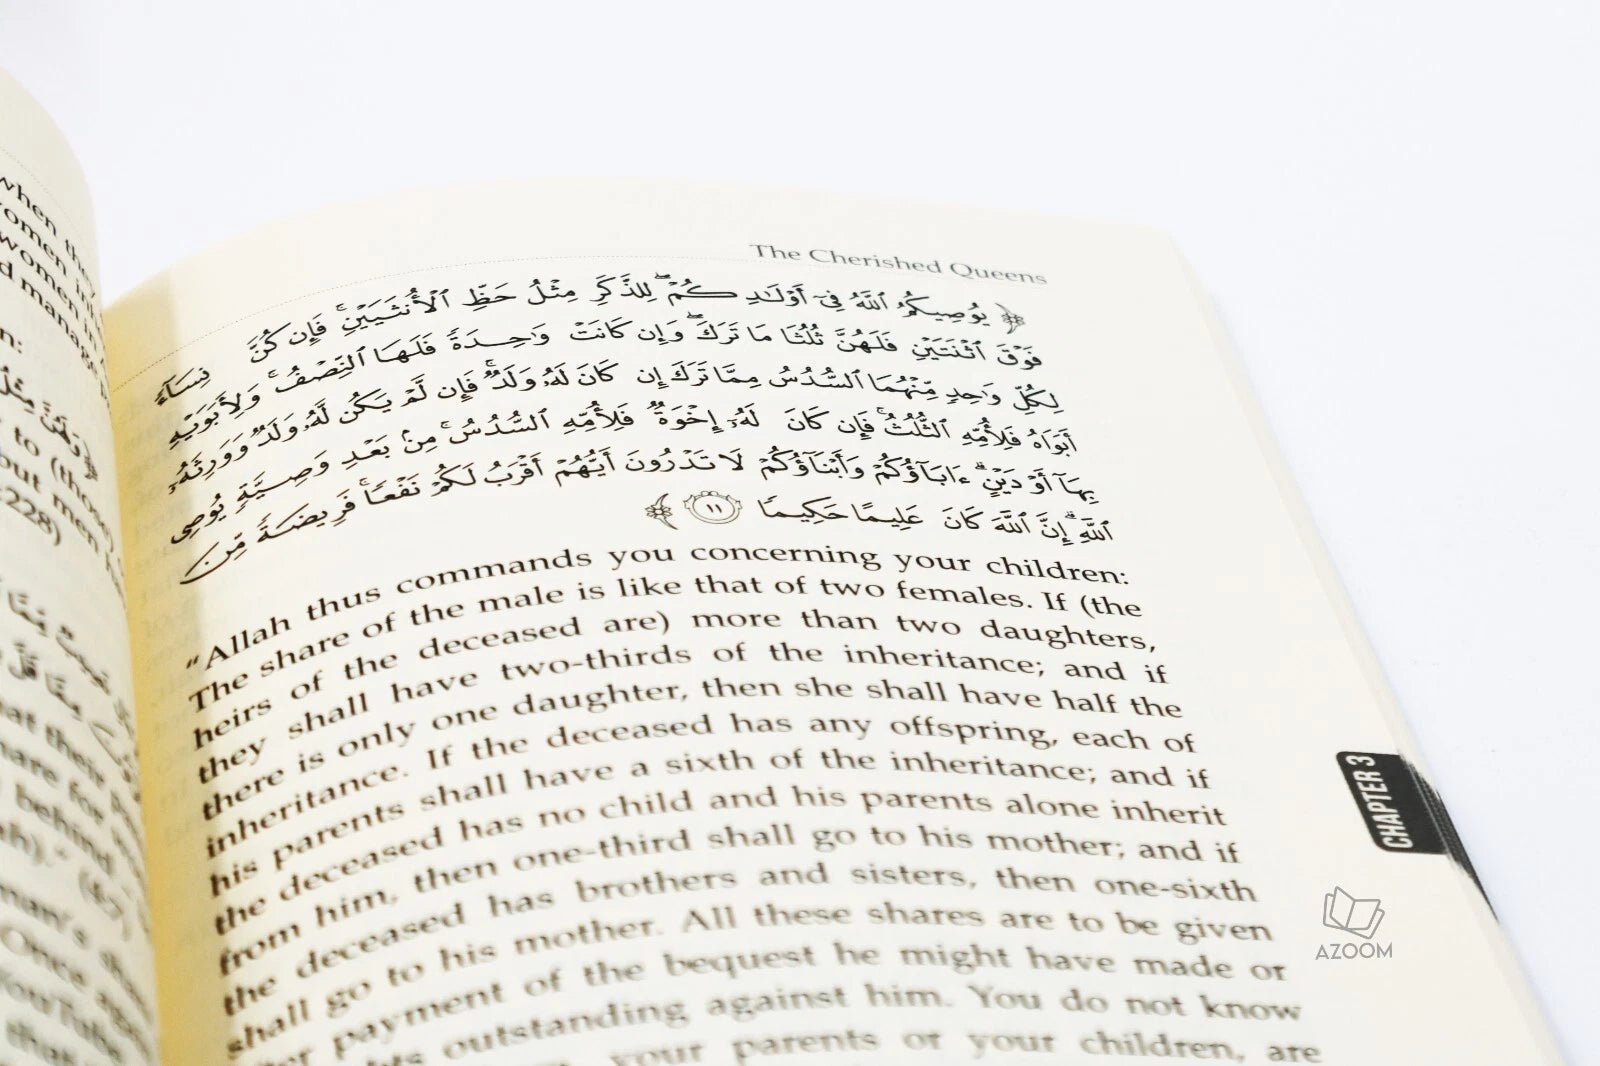 when the
women in
women in
d manage
n:
﴿ وَلَهُنَّ مِثْلُ
to (those)
but men
:228)
مِّمَّا
مِمَّا قَلَّ
at their
share for
behind
ah)." (4:7)
man's share
Once again
The Cherished Queens
﴿ يُوصِيكُمُ ٱللَّهُ فِىٓ أَوْلَـٰدِكُمْ ۖ لِلذَّكَرِ مِثْلُ حَظِّ ٱلْأُنثَيَيْنِ ۚ فَإِن كُنَّ نِسَآءً
فَوْقَ ٱثْنَتَيْنِ فَلَهُنَّ ثُلُثَا مَا تَرَكَ ۖ وَإِن كَانَتْ وَٰحِدَةً فَلَهَا ٱلنِّصْفُ ۚ وَلِأَبَوَيْهِ
لِكُلِّ وَٰحِدٍ مِّنْهُمَا ٱلسُّدُسُ مِمَّا تَرَكَ إِن كَانَ لَهُۥ وَلَدٌ ۚ فَإِن لَّمْ يَكُن لَّهُۥ وَلَدٌ وَوَرِثَهُۥٓ
أَبَوَاهُ فَلِأُمِّهِ ٱلثُّلُثُ ۚ فَإِن كَانَ لَهُۥٓ إِخْوَةٌ فَلِأُمِّهِ ٱلسُّدُسُ ۚ مِنۢ بَعْدِ وَصِيَّةٍ يُوصِى
بِهَآ أَوْ دَيْنٍ ۗ ءَابَآؤُكُمْ وَأَبْنَآؤُكُمْ لَا تَدْرُونَ أَيُّهُمْ أَقْرَبُ لَكُمْ نَفْعًا ۚ فَرِيضَةً مِّنَ
ٱللَّهِ ۗ إِنَّ ٱللَّهَ كَانَ عَلِيمًا حَكِيمًا ١١ ﴾
“Allah thus commands you concerning your children:
The share of the male is like that of two females. If (the
heirs of the deceased are) more than two daughters,
they shall have two-thirds of the inheritance; and if
there is only one daughter, then she shall have half the
inheritance. If the deceased has any offspring, each of
his parents shall have a sixth of the inheritance; and if
the deceased has no child and his parents alone inherit
from him, then one-third shall go to his mother; and if
the deceased has brothers and sisters, then one-sixth
shall go to his mother. All these shares are to be given
after payment of the bequest he might have made or
outstanding against him. You do not know
your parents or your children, are
CHAPTER 3
AZOOM